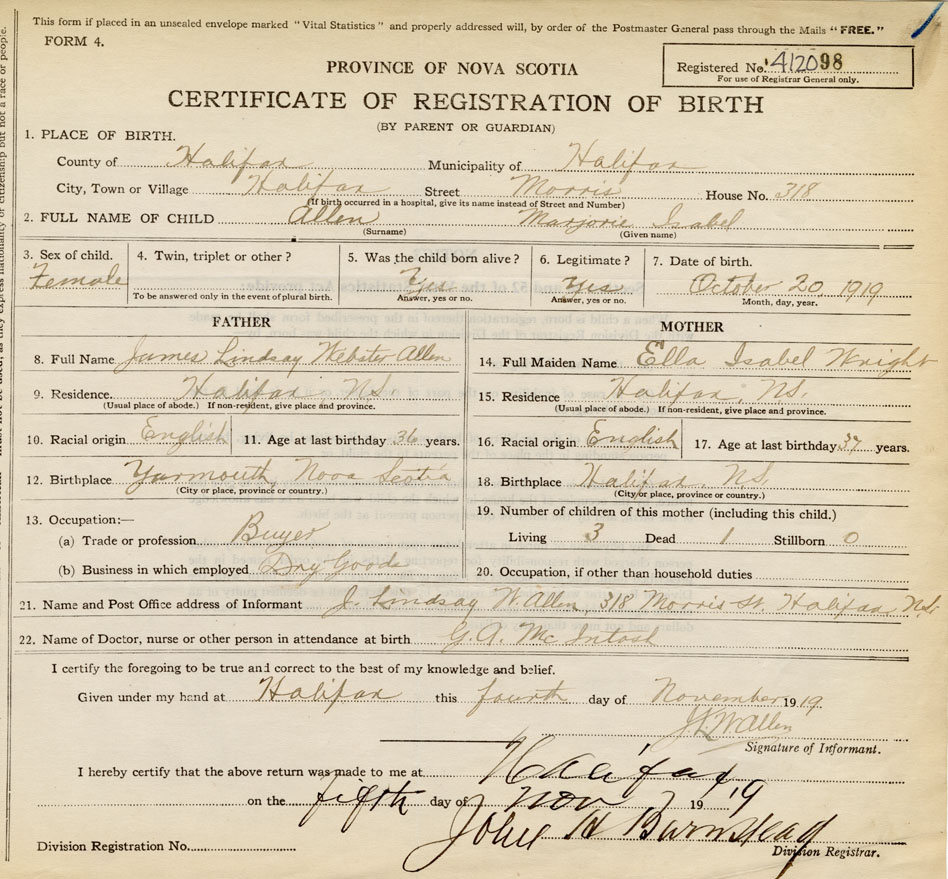 This form if placed in an unsealed envelope marked "Vital Statistics" and properly addressed will, by order of the Postmaster General pass through the Mails "FREE."
FORM 4.
Registered No. 412098
For use of Registrar General only.
PROVINCE OF NOVA SCOTIA
CERTIFICATE OF REGISTRATION OF BIRTH
(BY PARENT OR GUARDIAN)
1. PLACE OF BIRTH.
County of Halifax Municipality of Halifax
City, Town or Village Halifax Street Morris House No. 318
(If birth occurred in a hospital, give its name instead of Street and Number)
2. FULL NAME OF CHILD Allen Marjorie Isabel
(Surname) (Given name)
3. Sex of child. 4. Twin, triplet or other? 5. Was the child born alive? 6. Legitimate? 7. Date of birth.
Female Yes Yes October 20, 1919
To be answered only in the event of plural birth. Answer, yes or no. Answer, yes or no. Month, day, year.
FATHER
8. Full Name James Lindsay Webster Allen
9. Residence. Halifax, N.S.
(Usual place of abode.) If non-resident, give place and province.
10. Racial origin English 11. Age at last birthday 36 years.
12. Birthplace Yarmouth, Nova Scotia
(City or place, province or country.)
13. Occupation:—
(a) Trade or profession Buyer
(b) Business in which employed Dry Goods
MOTHER
14. Full Maiden Name Ella Isabel Wright
15. Residence Halifax, N.S.
(Usual place of abode.) If non-resident, give place and province.
16. Racial origin English 17. Age at last birthday 37 years.
18. Birthplace Halifax, N.S.
(City or place, province or country.)
19. Number of children of this mother (including this child.)
Living 3 Dead 1 Stillborn 0
20. Occupation, if other than household duties
21. Name and Post Office address of Informant J. Lindsay W. Allen, 318 Morris St. Halifax N.S.
22. Name of Doctor, nurse or other person in attendance at birth G.A. McIntosh
I certify the foregoing to be true and correct to the best of my knowledge and belief.
Given under my hand at Halifax this fourth day of November 1919.
J.L.W. Allen
Signature of Informant.
I hereby certify that the above return was made to me at Halifax
on the fifth day of Nov 19 19
John H Barnstead
Division Registration No. Division Registrar.